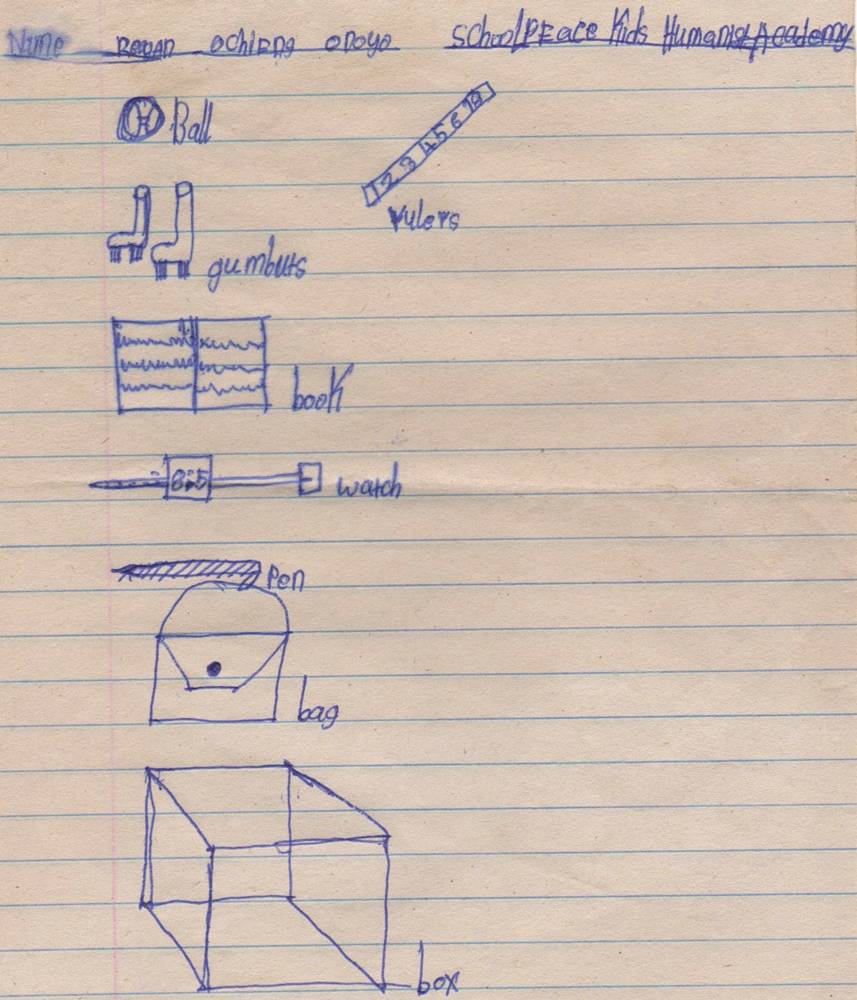 Name Regan ochieng onoyo School Peace Kids Humanist Academy
Ball
1 2 3 4 5 6
rulers
gumbuts
book
8:5
watch
Pen
bag
box